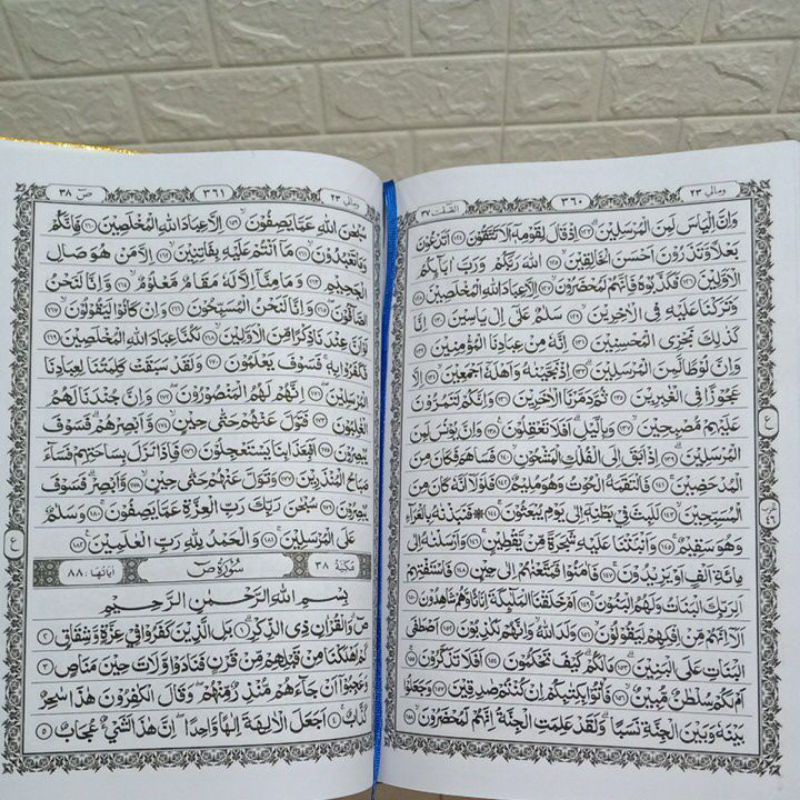 ومالي ٢٣
٣٦٠
الصّٰفّٰت ٣٧
وَاِنَّ اِلْيَاسَ لَمِنَ الْمُرْسَلِيْنَۗ ﴿١٢٣﴾ اِذْ قَالَ لِقَوْمِهٖٓ اَلَا تَتَّقُوْنَ ﴿١٢٤﴾ اَتَدْعُوْنَ
بَعْلًا وَّتَذَرُوْنَ اَحْسَنَ الْخَالِقِيْنَۙ ﴿١٢٥﴾ اللّٰهَ رَبَّكُمْ وَرَبَّ اٰبَاۤىِٕكُمُ
الْاَوَّلِيْنَ ﴿١٢٦﴾ فَكَذَّبُوْهُ فَاِنَّهُمْ لَمُحْضَرُوْنَۙ ﴿١٢٧﴾ اِلَّا عِبَادَ اللّٰهِ الْمُخْلَصِيْنَ ﴿١٢٨﴾
وَتَرَكْنَا عَلَيْهِ فِى الْاٰخِرِيْنَۙ ﴿١٢٩﴾ سَلٰمٌ عَلٰٓى اِلْ يَاسِيْنَ ﴿١٣٠﴾ اِنَّا
كَذٰلِكَ نَجْزِى الْمُحْسِنِيْنَ ﴿١٣١﴾ اِنَّهٗ مِنْ عِبَادِنَا الْمُؤْمِنِيْنَ ﴿١٣٢﴾
وَاِنَّ لُوْطًا لَّمِنَ الْمُرْسَلِيْنَۗ ﴿١٣٣﴾ اِذْ نَجَّيْنٰهُ وَاَهْلَهٗٓ اَجْمَعِيْنَۙ ﴿١٣٤﴾ اِلَّا
عَجُوْزًا فِى الْغٰبِرِيْنَ ﴿١٣٥﴾ ثُمَّ دَمَّرْنَا الْاٰخَرِيْنَ ﴿١٣٦﴾ وَاِنَّكُمْ لَتَمُرُّوْنَ
عَلَيْهِمْ مُّصْبِحِيْنَۙ ﴿١٣٧﴾ وَبِالَّيْلِۗ اَفَلَا تَعْقِلُوْنَ ﴿١٣٨﴾ وَاِنَّ يُوْنُسَ لَمِنَ
الْمُرْسَلِيْنَۗ ﴿١٣٩﴾ اِذْ اَبَقَ اِلَى الْفُلْكِ الْمَشْحُوْنِۙ ﴿١٤٠﴾ فَسَاهَمَ فَكَانَ مِنَ
الْمُدْحَضِيْنَۚ ﴿١٤١﴾ فَالْتَقَمَهُ الْحُوْتُ وَهُوَ مُلِيْمٌ ﴿١٤٢﴾ فَلَوْلَآ اَنَّهٗ كَانَ مِنَ
الْمُسَبِّحِيْنَۙ ﴿١٤٣﴾ لَلَبِثَ فِيْ بَطْنِهٖٓ اِلٰى يَوْمِ يُبْعَثُوْنَۚ ﴿١٤٤﴾ ۞ فَنَبَذْنٰهُ بِالْعَرَاۤءِ
وَهُوَ سَقِيْمٌۚ ﴿١٤٥﴾ وَاَنْۢبَتْنَا عَلَيْهِ شَجَرَةً مِّنْ يَّقْطِيْنٍۚ ﴿١٤٦﴾ وَاَرْسَلْنٰهُ اِلٰى
مِائَةِ اَلْفٍ اَوْ يَزِيْدُوْنَۚ ﴿١٤٧﴾ فَاٰمَنُوْا فَمَتَّعْنٰهُمْ اِلٰى حِيْنٍ ﴿١٤٨﴾ فَاسْتَفْتِهِمْ
اَلِرَبِّكَ الْبَنَاتُ وَلَهُمُ الْبَنُوْنَۙ ﴿١٤٩﴾ اَمْ خَلَقْنَا الْمَلٰۤىِٕكَةَ اِنَاثًا وَّهُمْ شَاهِدُوْنَ ﴿١٥٠﴾
اَلَآ اِنَّهُمْ مِّنْ اِفْكِهِمْ لَيَقُوْلُوْنَۙ ﴿١٥١﴾ وَلَدَ اللّٰهُۙ وَاِنَّهُمْ لَكٰذِبُوْنَۙ ﴿١٥٢﴾ اَصْطَفَى
الْبَنَاتِ عَلَى الْبَنِيْنَۗ ﴿١٥٣﴾ مَا لَكُمْۗ كَيْفَ تَحْكُمُوْنَ ﴿١٥٤﴾ اَفَلَا تَذَكَّرُوْنَۚ ﴿١٥٥﴾
اَمْ لَكُمْ سُلْطٰنٌ مُّبِيْنٌۙ ﴿١٥٦﴾ فَأْتُوْا بِكِتٰبِكُمْ اِنْ كُنْتُمْ صٰدِقِيْنَ ﴿١٥٧﴾ وَجَعَلُوْا
بَيْنَهٗ وَبَيْنَ الْجِنَّةِ نَسَبًاۗ وَلَقَدْ عَلِمَتِ الْجِنَّةُ اِنَّهُمْ لَمُحْضَرُوْنَۙ ﴿١٥٨﴾
ع
ومالي ٢٣
٣٦١
صۤ ٣٨
سُبْحٰنَ اللّٰهِ عَمَّا يَصِفُوْنَۙ ﴿١٥٩﴾ اِلَّا عِبَادَ اللّٰهِ الْمُخْلَصِيْنَ ﴿١٦٠﴾ فَاِنَّكُمْ
وَمَا تَعْبُدُوْنَۙ ﴿١٦١﴾ مَآ اَنْتُمْ عَلَيْهِ بِفَاتِنِيْنَۙ ﴿١٦٢﴾ اِلَّا مَنْ هُوَ صَالِ
الْجَحِيْمِ ﴿١٦٣﴾ وَمَا مِنَّآ اِلَّا لَهٗ مَقَامٌ مَّعْلُوْمٌۙ ﴿١٦٤﴾ وَاِنَّا لَنَحْنُ
الصَّاۤفُّوْنَۚ ﴿١٦٥﴾ وَاِنَّا لَنَحْنُ الْمُسَبِّحُوْنَ ﴿١٦٦﴾ وَاِنْ كَانُوْا لَيَقُوْلُوْنَۙ ﴿١٦٧﴾
لَوْ اَنَّ عِنْدَنَا ذِكْرًا مِّنَ الْاَوَّلِيْنَۙ ﴿١٦٨﴾ لَكُنَّا عِبَادَ اللّٰهِ الْمُخْلَصِيْنَ ﴿١٦٩﴾
فَكَفَرُوْا بِهٖۚ فَسَوْفَ يَعْلَمُوْنَ ﴿١٧٠﴾ وَلَقَدْ سَبَقَتْ كَلِمَتُنَا لِعِبَادِنَا
الْمُرْسَلِيْنَۖ ﴿١٧١﴾ اِنَّهُمْ لَهُمُ الْمَنْصُوْرُوْنَۖ ﴿١٧٢﴾ وَاِنَّ جُنْدَنَا لَهُمُ
الْغٰلِبُوْنَ ﴿١٧٣﴾ فَتَوَلَّ عَنْهُمْ حَتّٰى حِيْنٍۙ ﴿١٧٤﴾ وَّاَبْصِرْهُمْۗ فَسَوْفَ
يُبْصِرُوْنَ ﴿١٧٥﴾ اَفَبِعَذَابِنَا يَسْتَعْجِلُوْنَ ﴿١٧٦﴾ فَاِذَا نَزَلَ بِسَاحَتِهِمْ فَسَاۤءَ
صَبَاحُ الْمُنْذَرِيْنَ ﴿١٧٧﴾ وَتَوَلَّ عَنْهُمْ حَتّٰى حِيْنٍۙ ﴿١٧٨﴾ وَّاَبْصِرْۗ فَسَوْفَ
يُبْصِرُوْنَ ﴿١٧٩﴾ سُبْحٰنَ رَبِّكَ رَبِّ الْعِزَّةِ عَمَّا يَصِفُوْنَۚ ﴿١٨٠﴾ وَسَلٰمٌ
عَلَى الْمُرْسَلِيْنَۚ ﴿١٨١﴾ وَالْحَمْدُ لِلّٰهِ رَبِّ الْعٰلَمِيْنَ ﴿١٨٢﴾
مكية ٣٨
سُوْرَةُ صۤ
آياتها : ٨٨
بِسْمِ اللّٰهِ الرَّحْمٰنِ الرَّحِيْمِ
صۤ وَالْقُرْاٰنِ ذِى الذِّكْرِۗ ﴿١﴾ بَلِ الَّذِيْنَ كَفَرُوْا فِيْ عِزَّةٍ وَّشِقَاقٍ ﴿٢﴾
كَمْ اَهْلَكْنَا مِنْ قَبْلِهِمْ مِّنْ قَرْنٍ فَنَادَوْا وَّلَاتَ حِيْنَ مَنَاصٍ ﴿٣﴾
وَعَجِبُوْٓا اَنْ جَاۤءَهُمْ مُّنْذِرٌ مِّنْهُمْۖ وَقَالَ الْكٰفِرُوْنَ هٰذَا سٰحِرٌ
كَذَّابٌۚ ﴿٤﴾ اَجَعَلَ الْاٰلِهَةَ اِلٰهًا وَّاحِدًاۖ اِنَّ هٰذَا لَشَيْءٌ عُجَابٌ ﴿٥﴾
ع